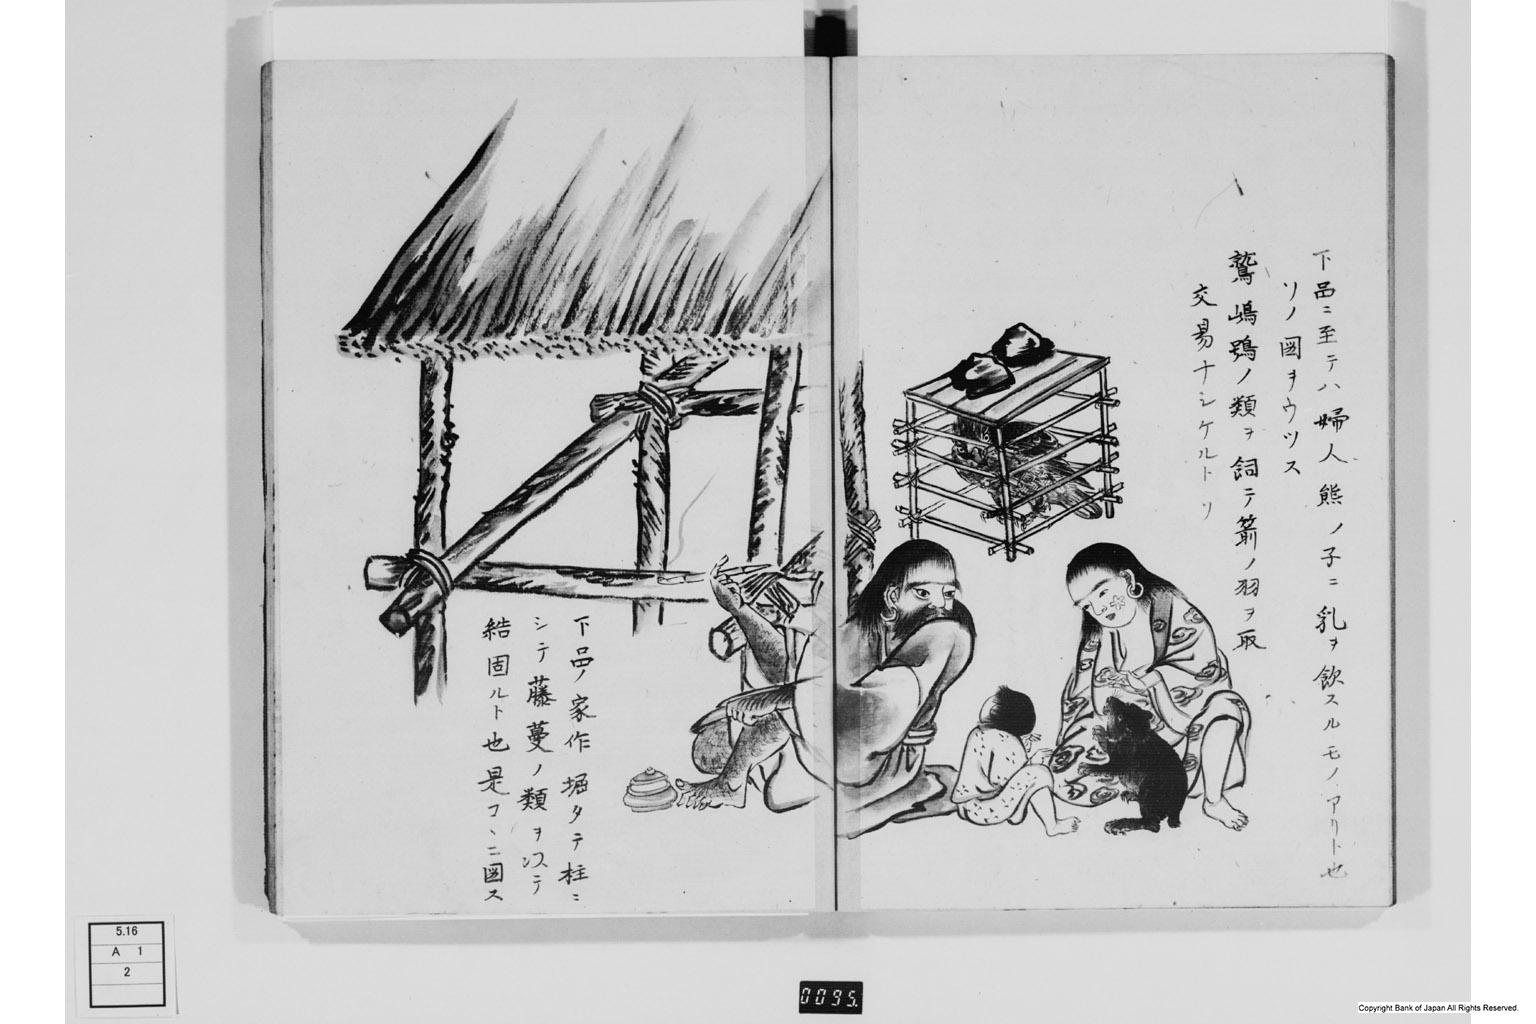 下品ニ至テハ婦人熊ノ子ニ乳ヲ飲スルモノアリト也
ソノ圖ヲウツス
鷲嶋鴞ノ類ヲ飼テ箭ノ羽ヲ取
交易ナシケルトソ
下品ノ家作堀タテ柱ニ
シテ藤蔓ノ類ヲ以テ
結固ルト也是コヽニ圖ス
5.16
A 1
2
0095.
Copyright Bank of Japan All Rights Reserved.